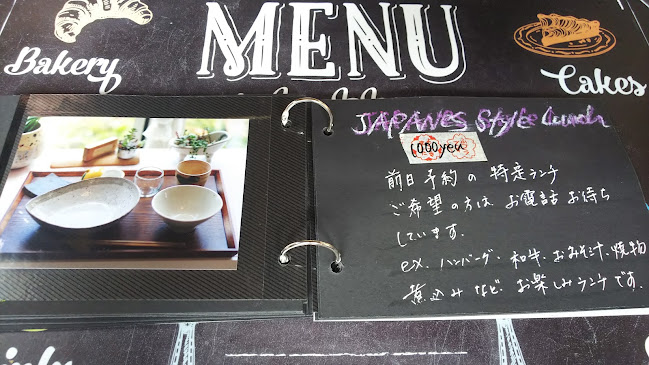 MENU
Bakery
Cakes
JAPANES Style Lunch
1000yen
前日予約の特定ランチ
ご希望の方は お電話お待ち
しています.
ex. ハンバーグ. 和牛. おみそ汁. 焼物
煮込みなど. お楽しみランチです.